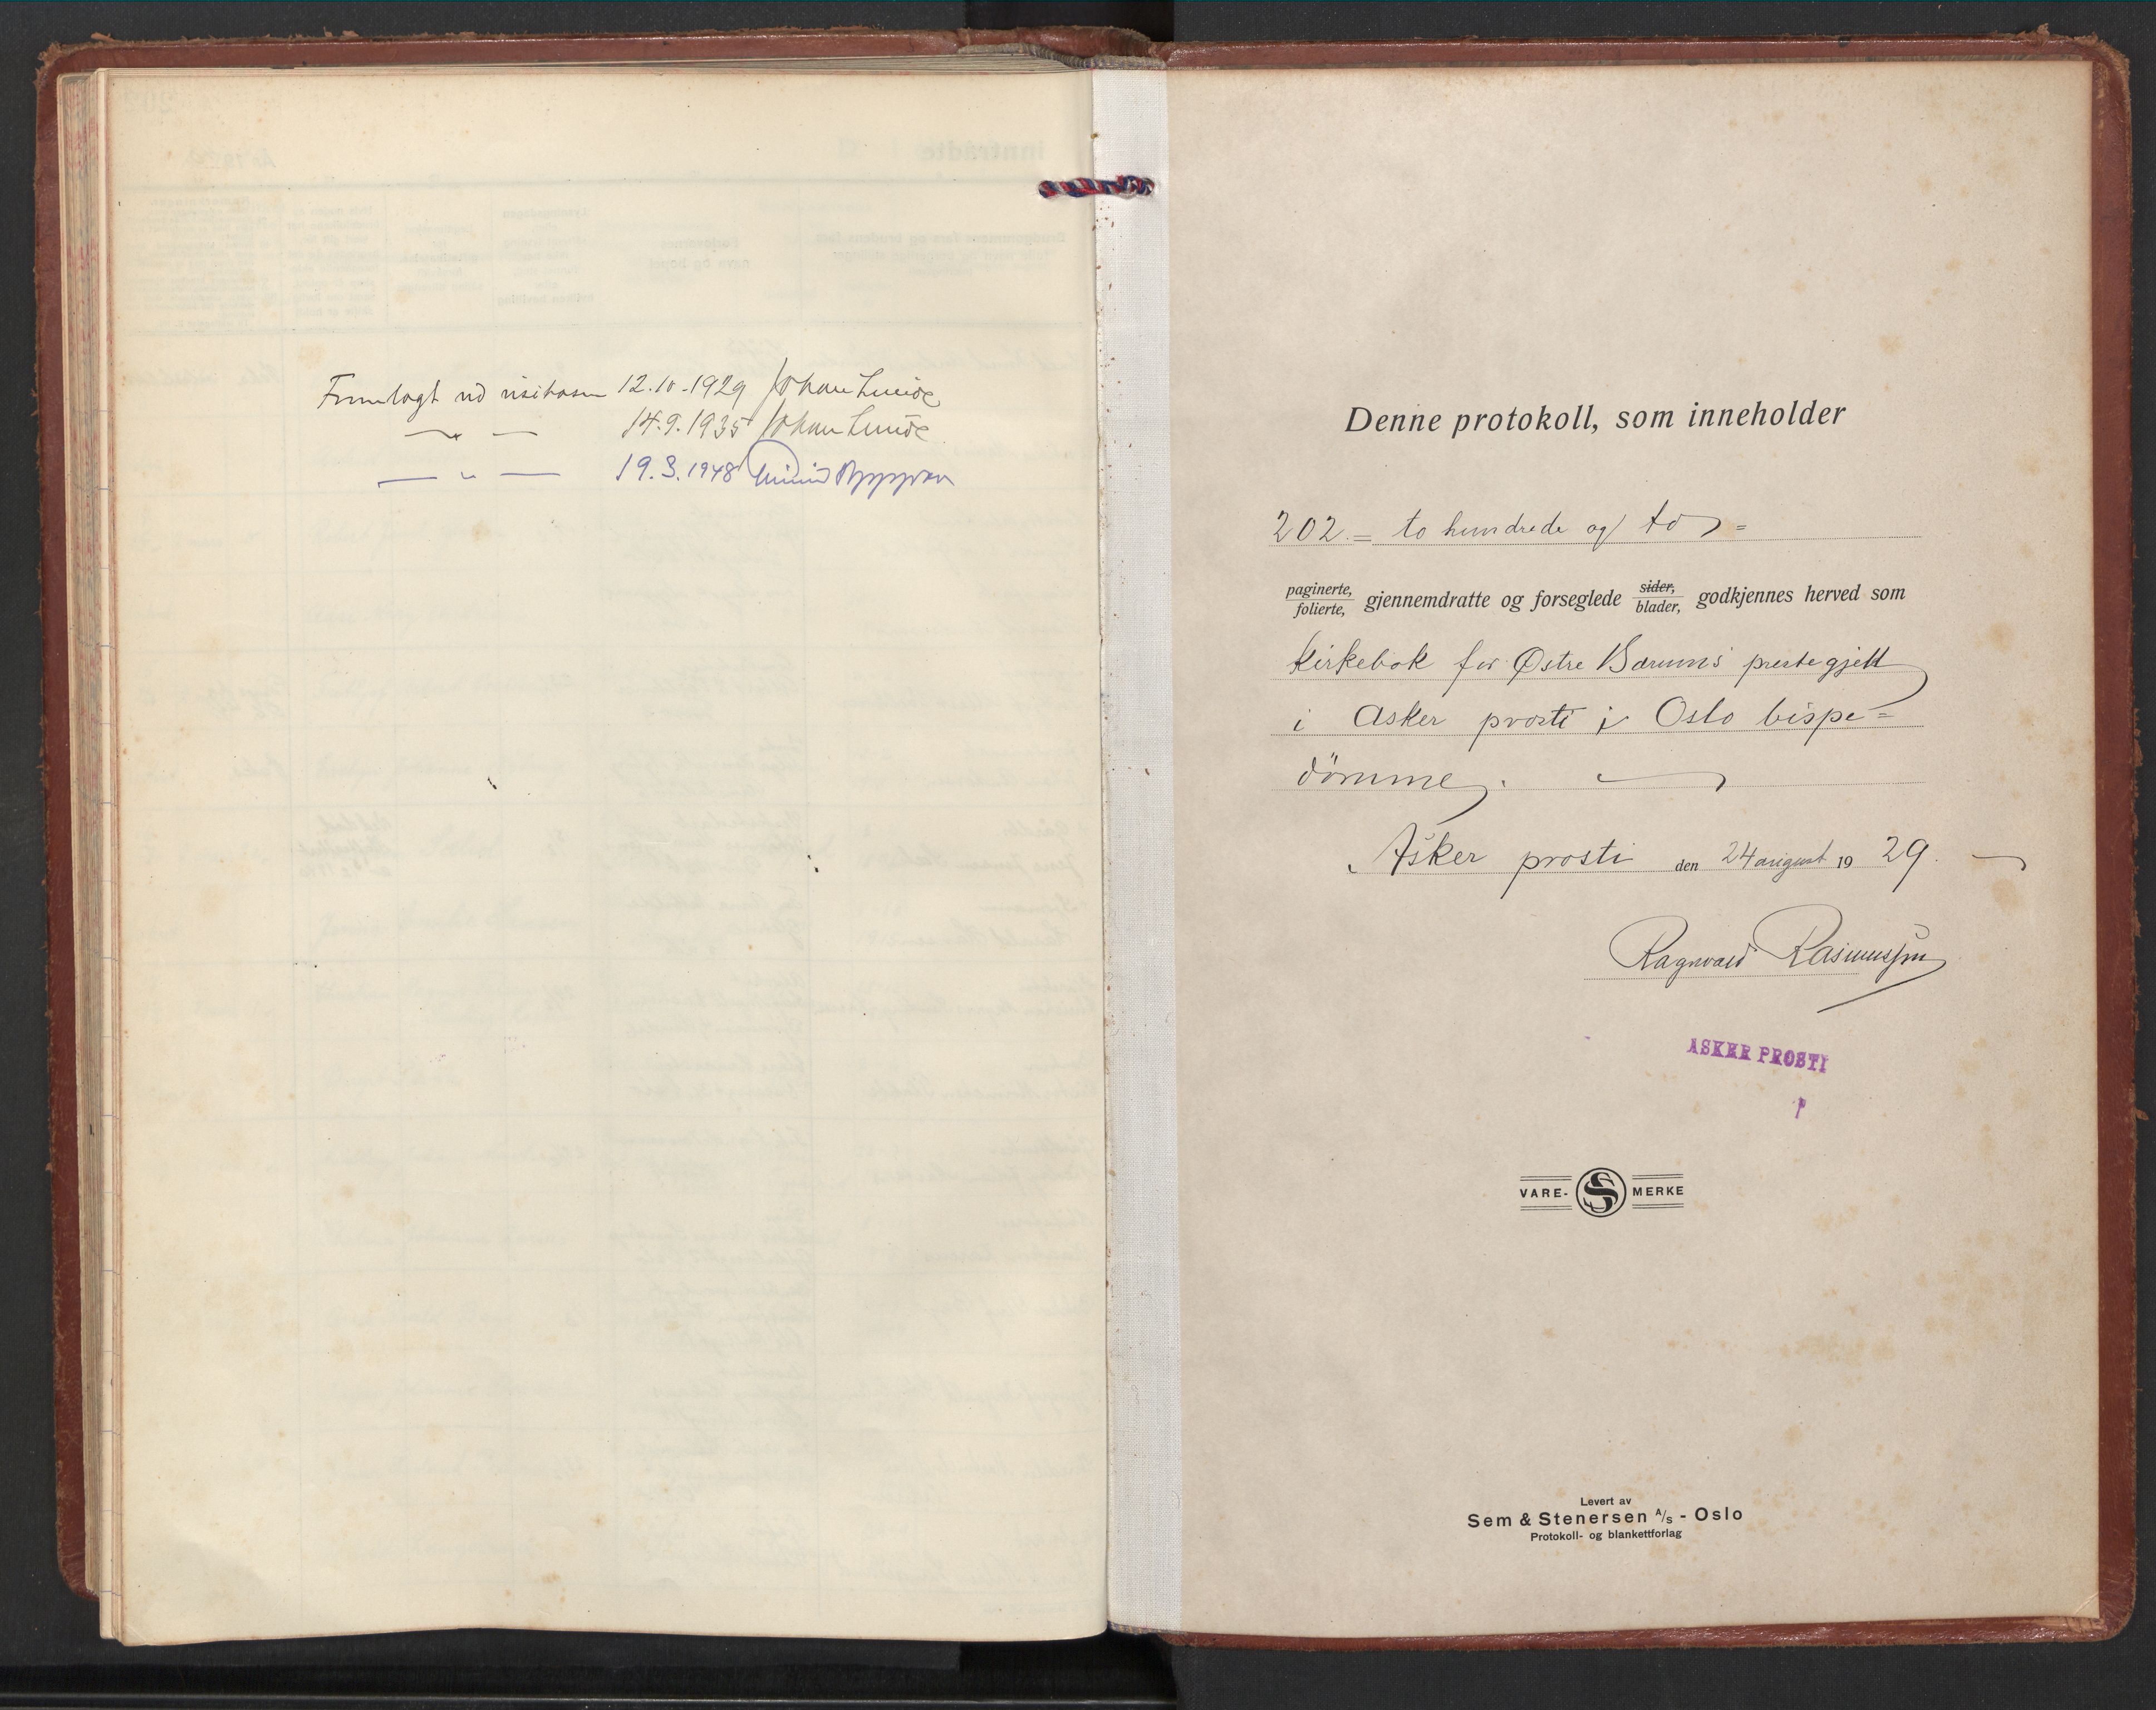 Fremlagt ved visitasen 12.10.1929 Johan Lunde
— " — 14.9.1935 Johan Lunde
— " — 19.3.1948
Denne protokoll, som inneholder
202. = to hundrede og to =
paginerte, folierte, gjennemdratte og forseglede sider, blader, godkjennes herved som
kirkebok for Østre Bærums prestegjell
i Asker prosti i Oslo bispe=
dömme.
Asker prosti den 24 august 19 29.
Ragnvald Rasmussen
ASKER PROSTI
VARE- S MERKE
Levert av
Sem & Stenersen A/S - Oslo
Protokoll- og blankettforlag